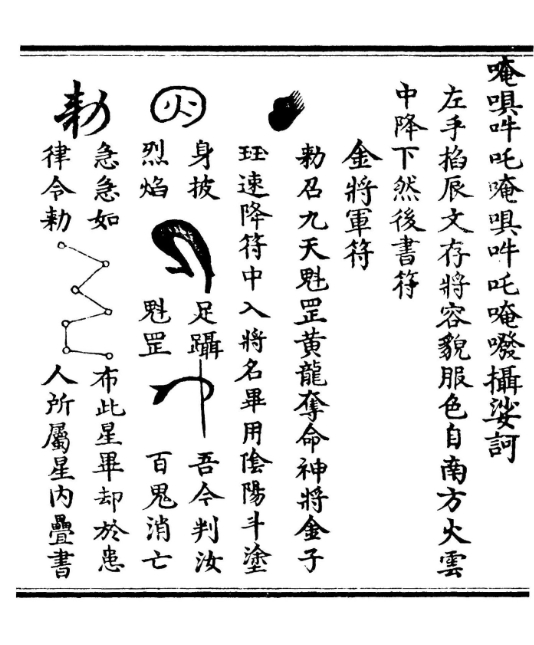 唵㖵吽吒唵㖵吽吒唵㘔攝娑訶
左手掐辰文存將容貌服色自南方火雲
中降下然後書符
金將軍符
勑召九天魁罡黃龍奪命神將金子
珏速降符中入將名畢用陰陽斗塗
身披
足躡
吾今判汝
火
烈焰
魁罡
百鬼消亡
勑
急急如
布此星畢却於患
律令勑
人所屬星內疊書